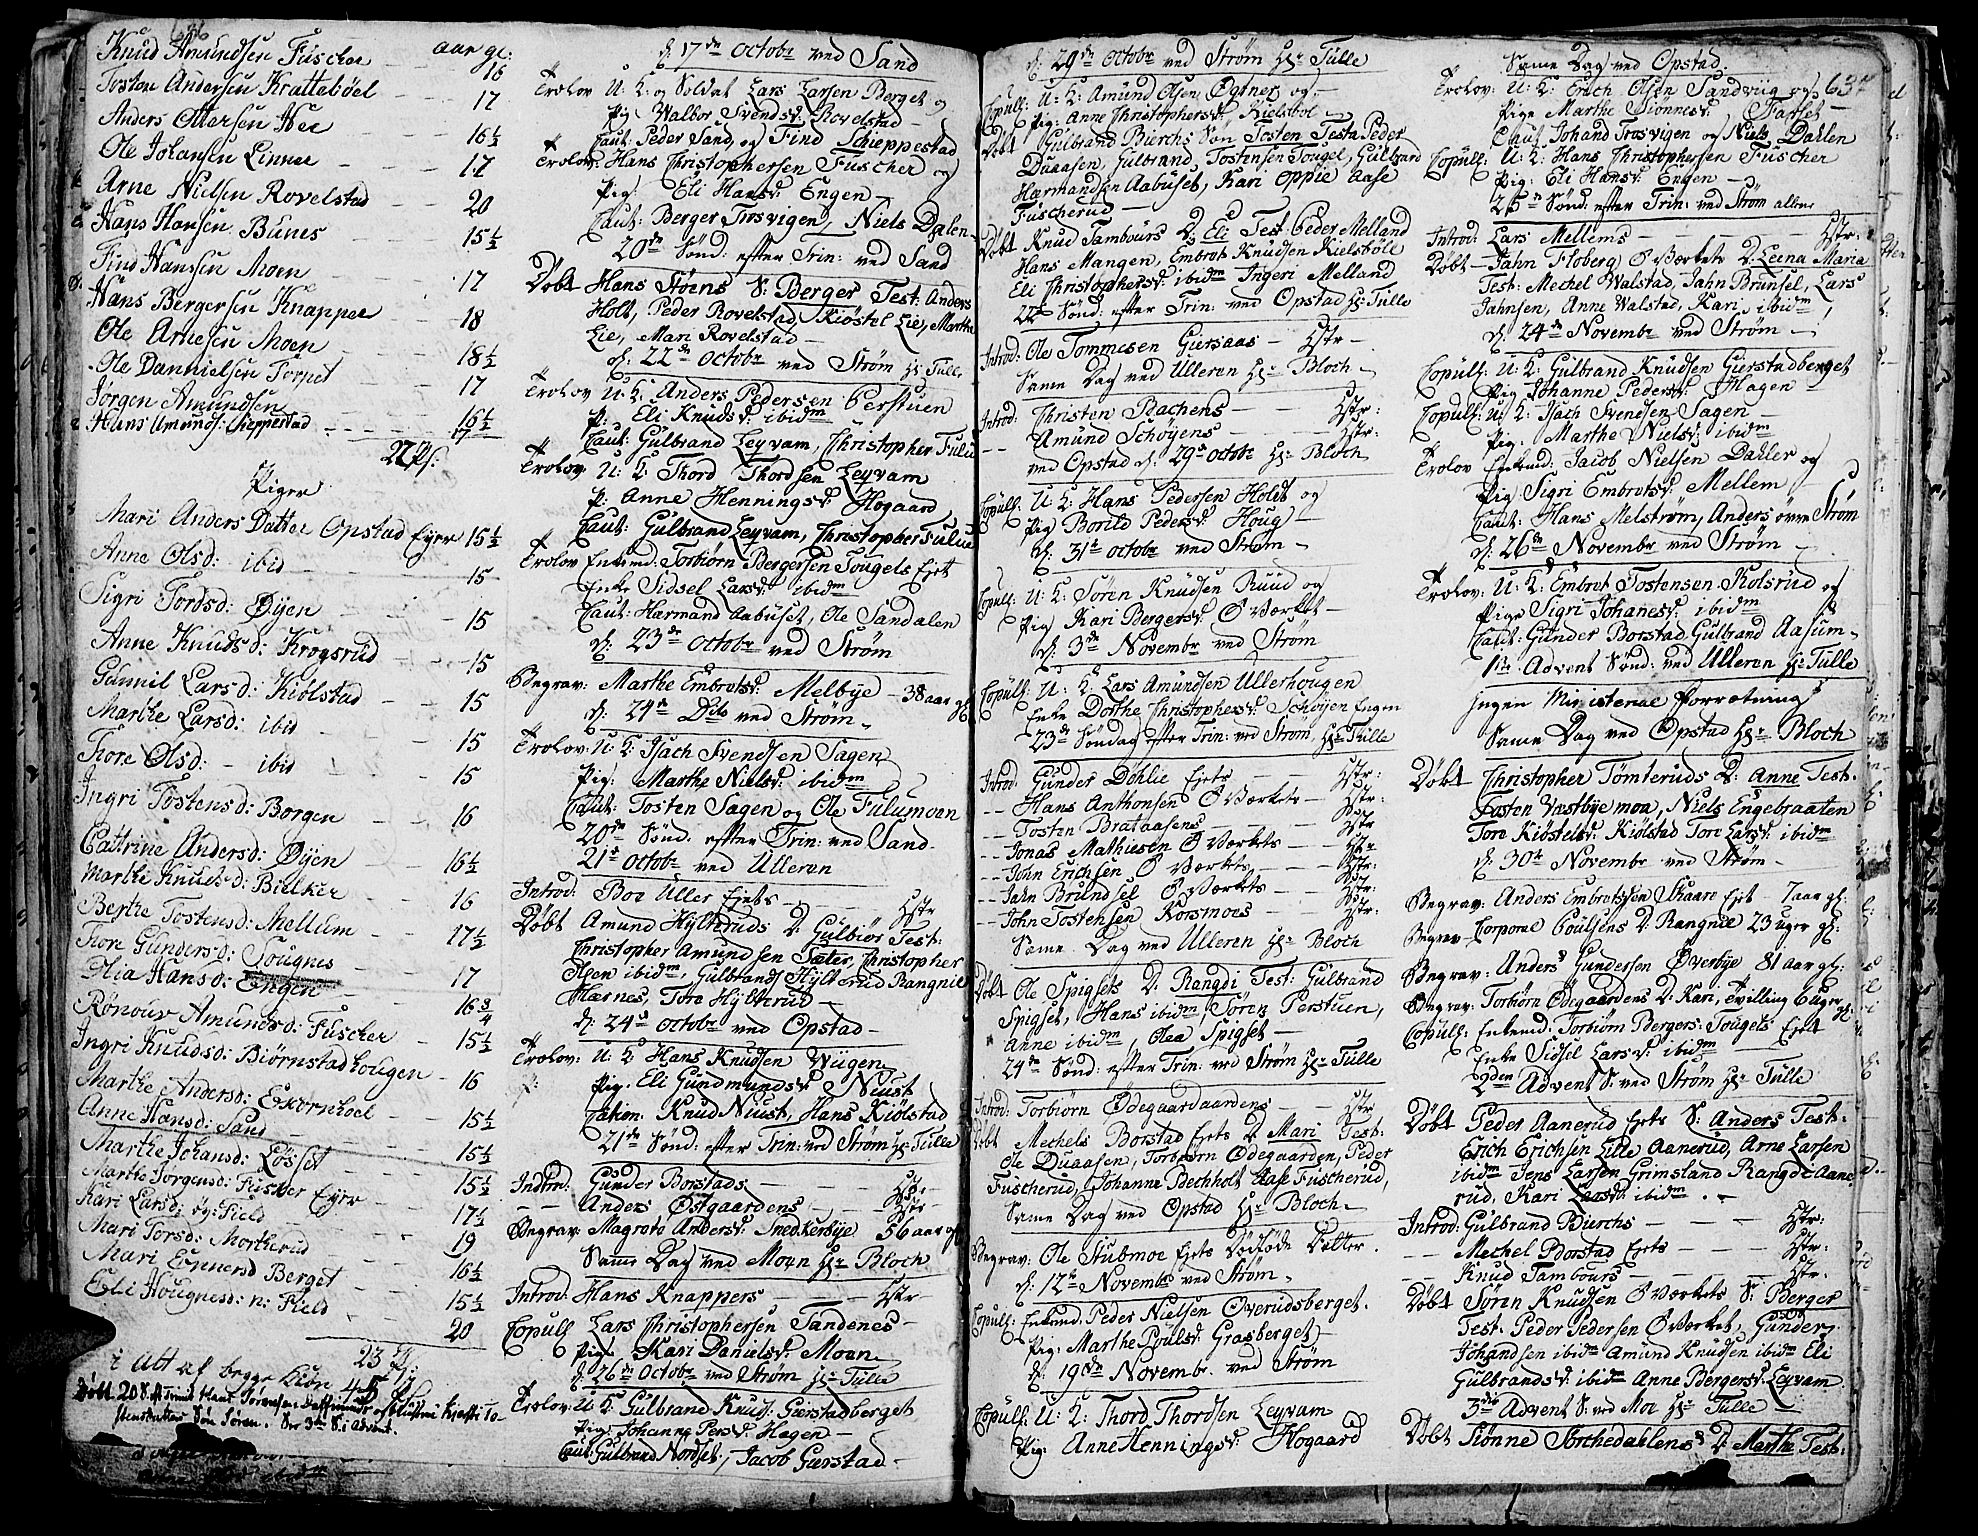 Knud Amundsen Fuscher aar gl: 16
Tosten Andersen Krattebøel 17
Anders Ottersen Hee 16½
Ole Johansen Linnee 17
Arne Nielsen Rovelstad 20
Hans Hansen Bunes 15½
Find Hansen Moen 17
Hans Bergersen Knapper 18
Ole Arnesen Moen 18½
Ole Dannielsen Torpet 17
Jørgen Amundsen 16½
Hans Amunds: Scheppestad 17
22 Ps:
Piger
Mari Anders Datter Opstad Eyer 15½
Anne Olsd: ibid 15
Sigri Tordsd: Øyen 15
Anne Knudsd: Krogsrud 15
Gunnil Larsd: Kiølstad 15
Marthe Larsd: ibid 15
Tore Olsd: ibid 15
Ingri Tostensd: Borgen 16
Cattrine Andersd: Øyen 16½
Marthe Knudsd: Bielker 16
Berthe Tostensd: Mellum 17½
Tore Gundersd: Tougnes 17
Olia Hansd: Engen 16¾
Rønour Amundsd: Fuscher 15½
Ingri Knudsd: Biørnstadhougen 16
Marthe Andersd: Ekornhoel 15½
Anne Hansd: Sand 15½
Marthe Johansd: Løsset 15½
Marthe Jørgensd: Fuscher Eyer 17½
Kari Larsd: øy: Field 19
Mari Torsd: Mortkerud 16½
Mari Evensd Berget 15½
Eli Hougnesd: n: Field 20
23 P:
i Alt af begge Kiøn 45 P:
d: 17de Octobr ved Sand
Trolov U: K: og Soldat Lars Larsen Berget og
Pig Walbor Svendsd: Rovelstad
Caut: Peder Sand og Find Schieppestad
Trolov: Hans Christophersen Fuscher og
Pig: Eli Hansd: Engen
Caut: Berger Trosvigen, Niels Dalen
20de Sønd: efter Trin: ved Sand
Døbt Hans Støens S: Berger Test: Anders
Holt, Peder Rovelstad, Kiøstel Lie, Marthe
Lie, Mari Rovelstad
d: 22de Octobr ved Strøm Hr Tulle
Trolov U: K: Anders Pedersen Perstuen
P: Eli Knudsd: ibidm
Caut: Gulbrand Leyvam, Christopher Fulu
Trolov U: K Thord Thordsen Leyvam
P: Anne Henningsd: Hogaard
Caut: Gulbrand Leyvam, Christopher Fulue
Trolov Enkemd: Torbiørn Bergersen Tougels Ejet
Enke Sidsel Larsd: ibidm
Caut: Harmand Aabuset, Ole Sandalen
d: 23de Octobr ved Strøm
Begrav: Marthe Embrotsd: Melbye 38 aar gl
d: 24de Dito ved Strøm
Trolov: U: K: Isach Svendsen Sagen
Pig: Marthe Nielsd: ibidm
Caut: Tosten Sagen og Ole Fulumoen
20de Sønd: efter Trin: ved Sand
21de Octobr ved Ulleren
Introd: Boe Uller Ejets Hstr
Døbt Amund Hylteruds D: Gulbiør Test:
Christopher Amundsen Sæter, Christopher
Olsen ibidm, Gulbrand Hylterud Rangnil
Harnes, Tore Hylterud
d: 24de Octobr ved Opstad
Trolov: U: K Hans Knudsen Wiigen
Pig. Eli Gundmundsd Niust
Cation: Knud Niust, Hans Kiølstad
21de Sønd: efter Trin: ved Strøm Hr Tulle
Introd: Gunder Borstads Hstr
Anders Østgaardens Hstr
Begrav: Magrete Andersd: Smedkerbye 56 aar gl
Same Dag ved Moen Hr Bloch
Introd: Hans Knappers Hstr
Copull Lars Christophersen Sandenes
Pige Kari Danielsd: Moen
d: 26de Octobr ved Strøm Hr Tulle
Trolov: U: K: Gulbrand Knuds: Gierstadberget
Pig: Johanne Persd: Hagen
Caut Gulbrand Nordset, Jacob Gierstad
d: 29de Octobr ved Strøm Hr: Tulle
Copull: U: K: Amund Olsen Ogtner og
Pig: Anne Christophersd: Kielsbøl
Døbt Gulbrand Bierchs Søn Tosten Test: Peder
Duaasen, Gulbrand Tostensen Tougel, Gulbrand
Harmandsen Aabuset, Kari Oppie Aase
Fuscherud
Døbt Knud Tambours D: Eli Test: Peder Melland
Hans Mangen, Embrot Knudsen Kielsbøll
Eli Christophersd: ibidm Ingeri Melland
22de Sønd: efter Trin: ved Opstad Hr: Tulle
Introd: Ole Tommesen Giersaas Hstr
Same Dag ved Ulleren Hr Bloch
Introd: Christen Bachens Hstr:
Amund Schøyens Hstr:
ved Opstad d: 29de Octobr Hr Bloch
Copull: U: K: Hans Pedersen Holdt og
Pig Borild Pedersd: Houg
d: 31te Octobr ved Strøm
Copull: U: K: Søren Knudsen Ruud og
Pig Kari Bergersd: O Værket
d: 3de Novembr ved Strøm
Copull: U: K: Lars Amundsen Ullerhougen
Enke Dorthe Christophersd: Schøyen Engen
23de Søndag efter Trin: ved Strøm, Hr Tulle
Introd: Gunder Døhlie Ejets Hstr:
Hans Anthonsen O Værkets Hstr:
Tosten Brataasens Hstr
Jonas Mathiesen O Værkets Hstr
John Erichsen O Værkets Hstr:
Jahn Brundsel O Værkets Hstr:
John Tostensen Korsmoes Hstr:
Same Dag ved Ulleren Hr Bloch
Døbt Ole Spigsets D: Rangdi Test: Gulbrand
Spigset, Hans ibidm, Søren Perstuen,
Anne ibidm, Olea Spigset
24de Sønd: efter Trin: ved Strøm Hr Tulle
Introd: Torbiørn Ødegaardaardens Hstr
Døbt Mechels Borstad Ejets D: Mari Test:
Ole Duaasen, Torbiørn Ødegaarden, Peder
Fuscherud, Johanne Bechholt Aase Fuscherud,
Same Dag ved Opstad Hr Bloch
Begrav: Ole Stubmoe Ejets Dødføde Datter.
d: 12te Novembr ved Strøm
Copull: Enkemd: Peder Nielsen Overudsberget.
Pig: Marthe Poulsd: Grasberget
d: 19de Novembr: ved Strøm
Copull: U: K: Thord Thordsen Leyvam
Pig: Anne Henningsd: Hogaard
637
Same Dag ved Opstad.
Trolov: U: K: Erich Olsen Sandviig og
Pige Marthe Siønnesd: Tasset
Caut Johand Trosvigen og Niels Dahlen
Copull: U: K: Hans Christophersen Fuscher
Pig: Eli Hansd: Engen
25de Sønd: efter Trin: ved Strøm
Introd: Lars Mellems Hstr:
Døbt Jahn Floberg O Værkets D: Leena Maria
Test: Mechel Walstad, Jahn Brunsel, Lars
Jahnsen, Anne Walstad, Kari ibidm
d: 24de Novembr ved Strøm
Copull: U: K: Gulbrand Knudsen Gierstadberget
Pig Johanne Pedersd: Hagen
Copull: U: K: Isach Svensen Sagen
Pig: Marthe Nielsd: ibidm
Trolov Enkemd: Jacob Nielsen Dahler og
Pig Sigri Embrotsd: Mellem
Caut: Hans Melstrøm, Anders øvre Strøm
d: 26de Novembr ved Strøm
Trolov: U: K: Embrot Tostensen Kolsrud og
Pige Sigri Johanesd: ibidm
Caut: Gunder Borstad, Gulbrand Aasum
1te Advent Sønd: ved Ulleren Hr: Tulle
Ingen Ministerial Forretning
Same Dag ved Opstad Hr Bloch
Døbt Christopher Tømteruds D: Anne Test:
Tosten Vestbyemoe, Niels Engebraaten
Tore Kiøstelsd: Kiølstad Tore Larsd: ibidm
d: 30te Novembr ved Strøm
Begrav: Anders Embrotsen Skaare Ejet 7 aar gl:
Begrav Corporal Poulsens D: Rangnil 23 uger gl:
Begrav: Anders Gundersen Øverbye 81 aar gl:
Begrav: Torbiørn Ødegaardens D: Kari, Tvilling 6 uger gl
Copull: Enkemd: Torbiørn Bergers: Tougels Ejet
Enke Sidsel Larsd: ibidm
2den Advent S: ved Strøm Hr Tulle
Døbt Peder Aanerud Ejets S: Anders Test:
Erich Erichsen Lille Aanerud, Arne Larsen
ibidm Jens Larsen Grimsland Rangdi Aane
rud, Kari Larsd: ibidm
Introd: Gulbrand Bierchs Hstr:
Mechel Borstad Ejets Hstr:
Knud Tambours Hstr:
Døbt Søren Knudsen O Værkets S: Berger
Test: Peder Pedersen O Værket, Gunder
Johandsen ibidm Amund Knudsen ibidm Eli
Gulbrandsd: ibidm Anne Bergersd: Leyvam
3die Advent S: ved Moe Hr Tulle
Døbt Siønne Sorchedahlens D: Marthe Test: